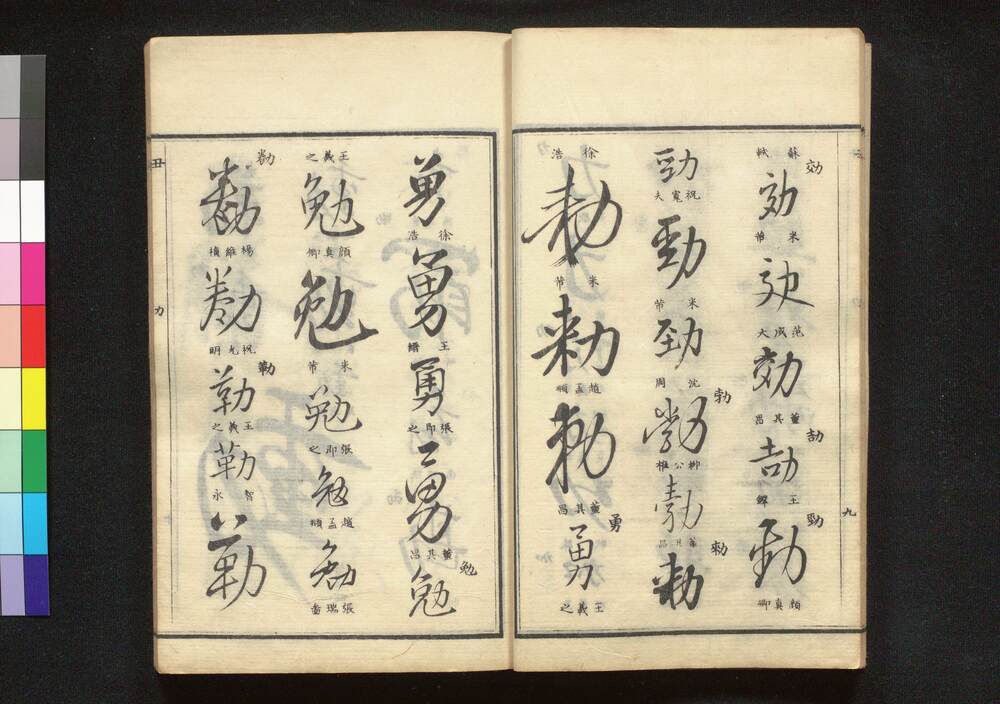 九
効
蘇軾
効
米芾
効
范成大
効
董其昌
劼
劼
王鐸
勁
勁
顔真卿
勁
祝寛夫
勁
米芾
勁
沈周
勃
勃
柳公権
勃
董其昌
勅
勅
徐浩
勅
米芾
勅
趙孟頫
勅
董其昌
勇
勇
王羲之
勇
徐浩
勇
王縉
勇
張即之
勇
董其昌
勉
勉
王羲之
勉
顔真卿
勉
米芾
勉
張即之
勉
趙孟頫
勉
張瑞啚
勌
勌
楊維楨
勌
祝允明
勒
勒
王羲之
勒
智永
勒
丑
力